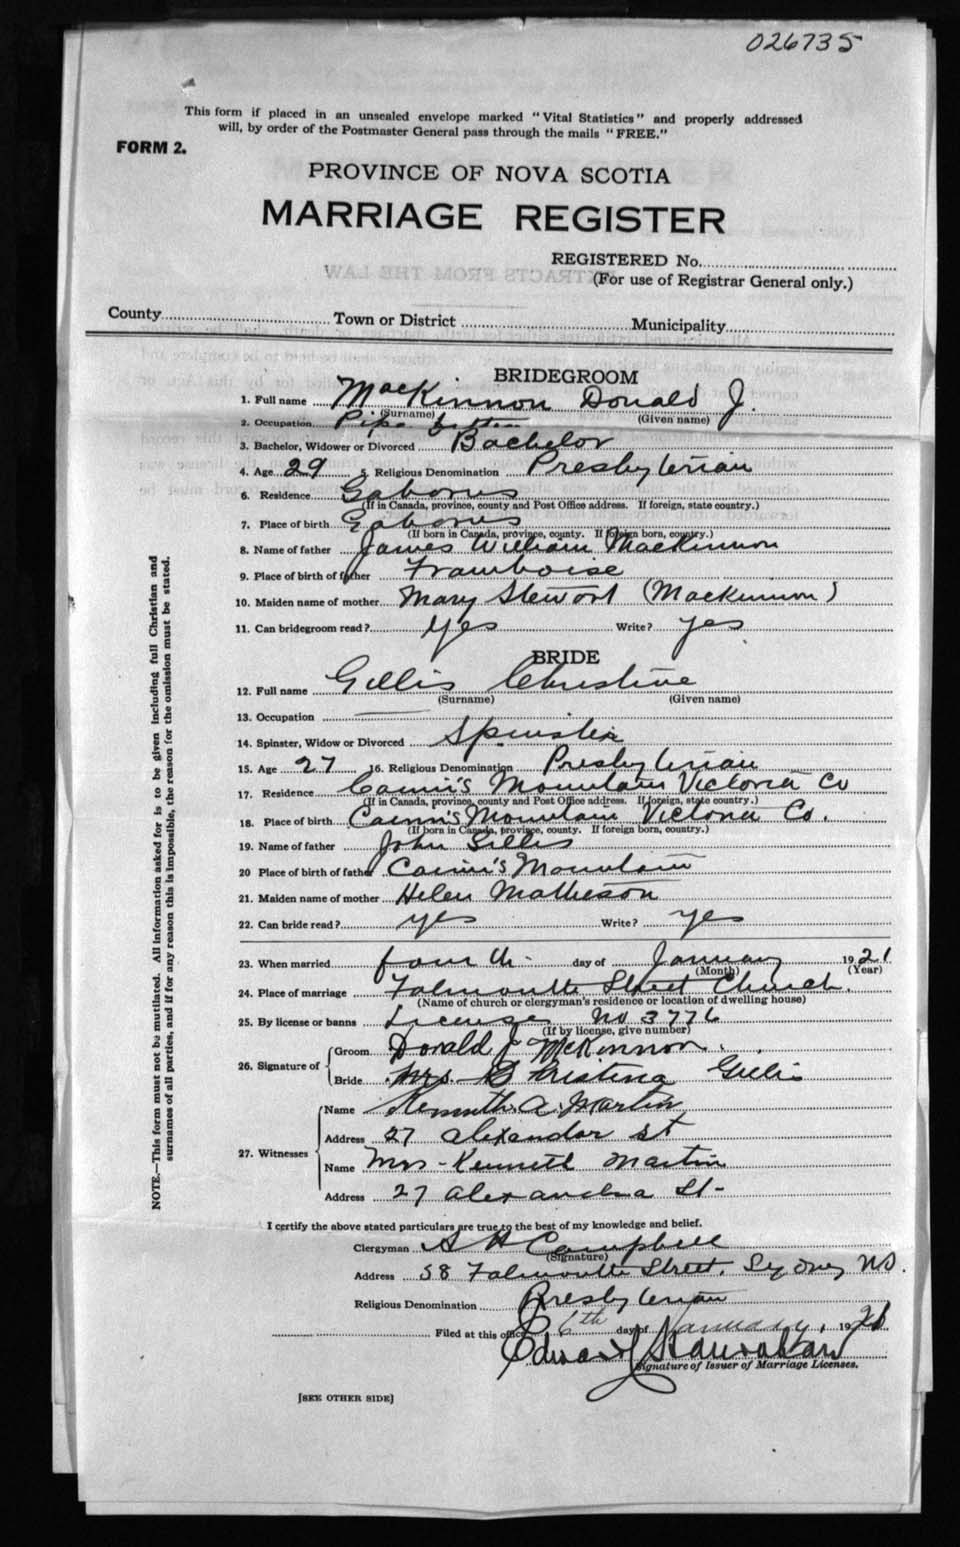 026735
This form if placed in an unsealed envelope marked "Vital Statistics" and properly addressed
will, by order of the Postmaster General pass through the mails "FREE."
FORM 2.
PROVINCE OF NOVA SCOTIA
MARRIAGE REGISTER
REGISTERED No.
(For use of Registrar General only.)
County Town or District Municipality
BRIDEGROOM
1. Full name MacKinnon Donald J.
(Surname) (Given name)
2. Occupation Pipe fitter
3. Bachelor, Widower or Divorced Bachelor
4. Age 29 5. Religious Denomination Presbyterian
6. Residence Gabarus
(If in Canada, province, county and Post Office address. If foreign, state country.)
7. Place of birth Gabarus
(If born in Canada, province, county. If foreign born, country.)
8. Name of father James William MacKinnon
9. Place of birth of father Framboise
10. Maiden name of mother Mary Stewart (MacKinnon)
11. Can bridegroom read? Yes Write? yes
BRIDE
12. Full name Gillis Christine
(Surname) (Given name)
13. Occupation
14. Spinster, Widow or Divorced Spinster
15. Age 27 16. Religious Denomination Presbyterian
17. Residence Cain's Mountain Victoria Co
(If in Canada, province, county and Post Office address. If foreign, state country.)
18. Place of birth Cain's Mountain Victoria Co.
(If born in Canada, province, county. If foreign born, country.)
19. Name of father John Gillis
20 Place of birth of father Cain's Mountain
21. Maiden name of mother Helen Matheson
22. Can bride read? yes Write? yes
23. When married fourth day of January 1921
(Month) (Year)
24. Place of marriage Falmouth Street Church.
(Name of church or clergyman's residence or location of dwelling house)
25. By license or banns License No 3776
(If by license, give number)
26. Signature of Groom Donald J McKinnon.
Bride Mrs. Christena Gillis
27. Witnesses Name Kenneth A. Martin
Address 27 Alexander st
Name Mrs - Kenneth Martin
Address 27 Alexandra St-
I certify the above stated particulars are true to the best of my knowledge and belief.
Clergyman A H Campbell
(Signature)
Address 58 Falmouth Street, Sydney NS.
Religious Denomination Presbyterian
Filed at this office 6th day of January, 1921
Edward
Signature of Issuer of Marriage Licenses.
[SEE OTHER SIDE]
NOTE.—This form must not be mutilated. All information asked for is to be given including full Christian and
surnames of all parties, and if for any reason this is impossible, the reason for the omission must be stated.